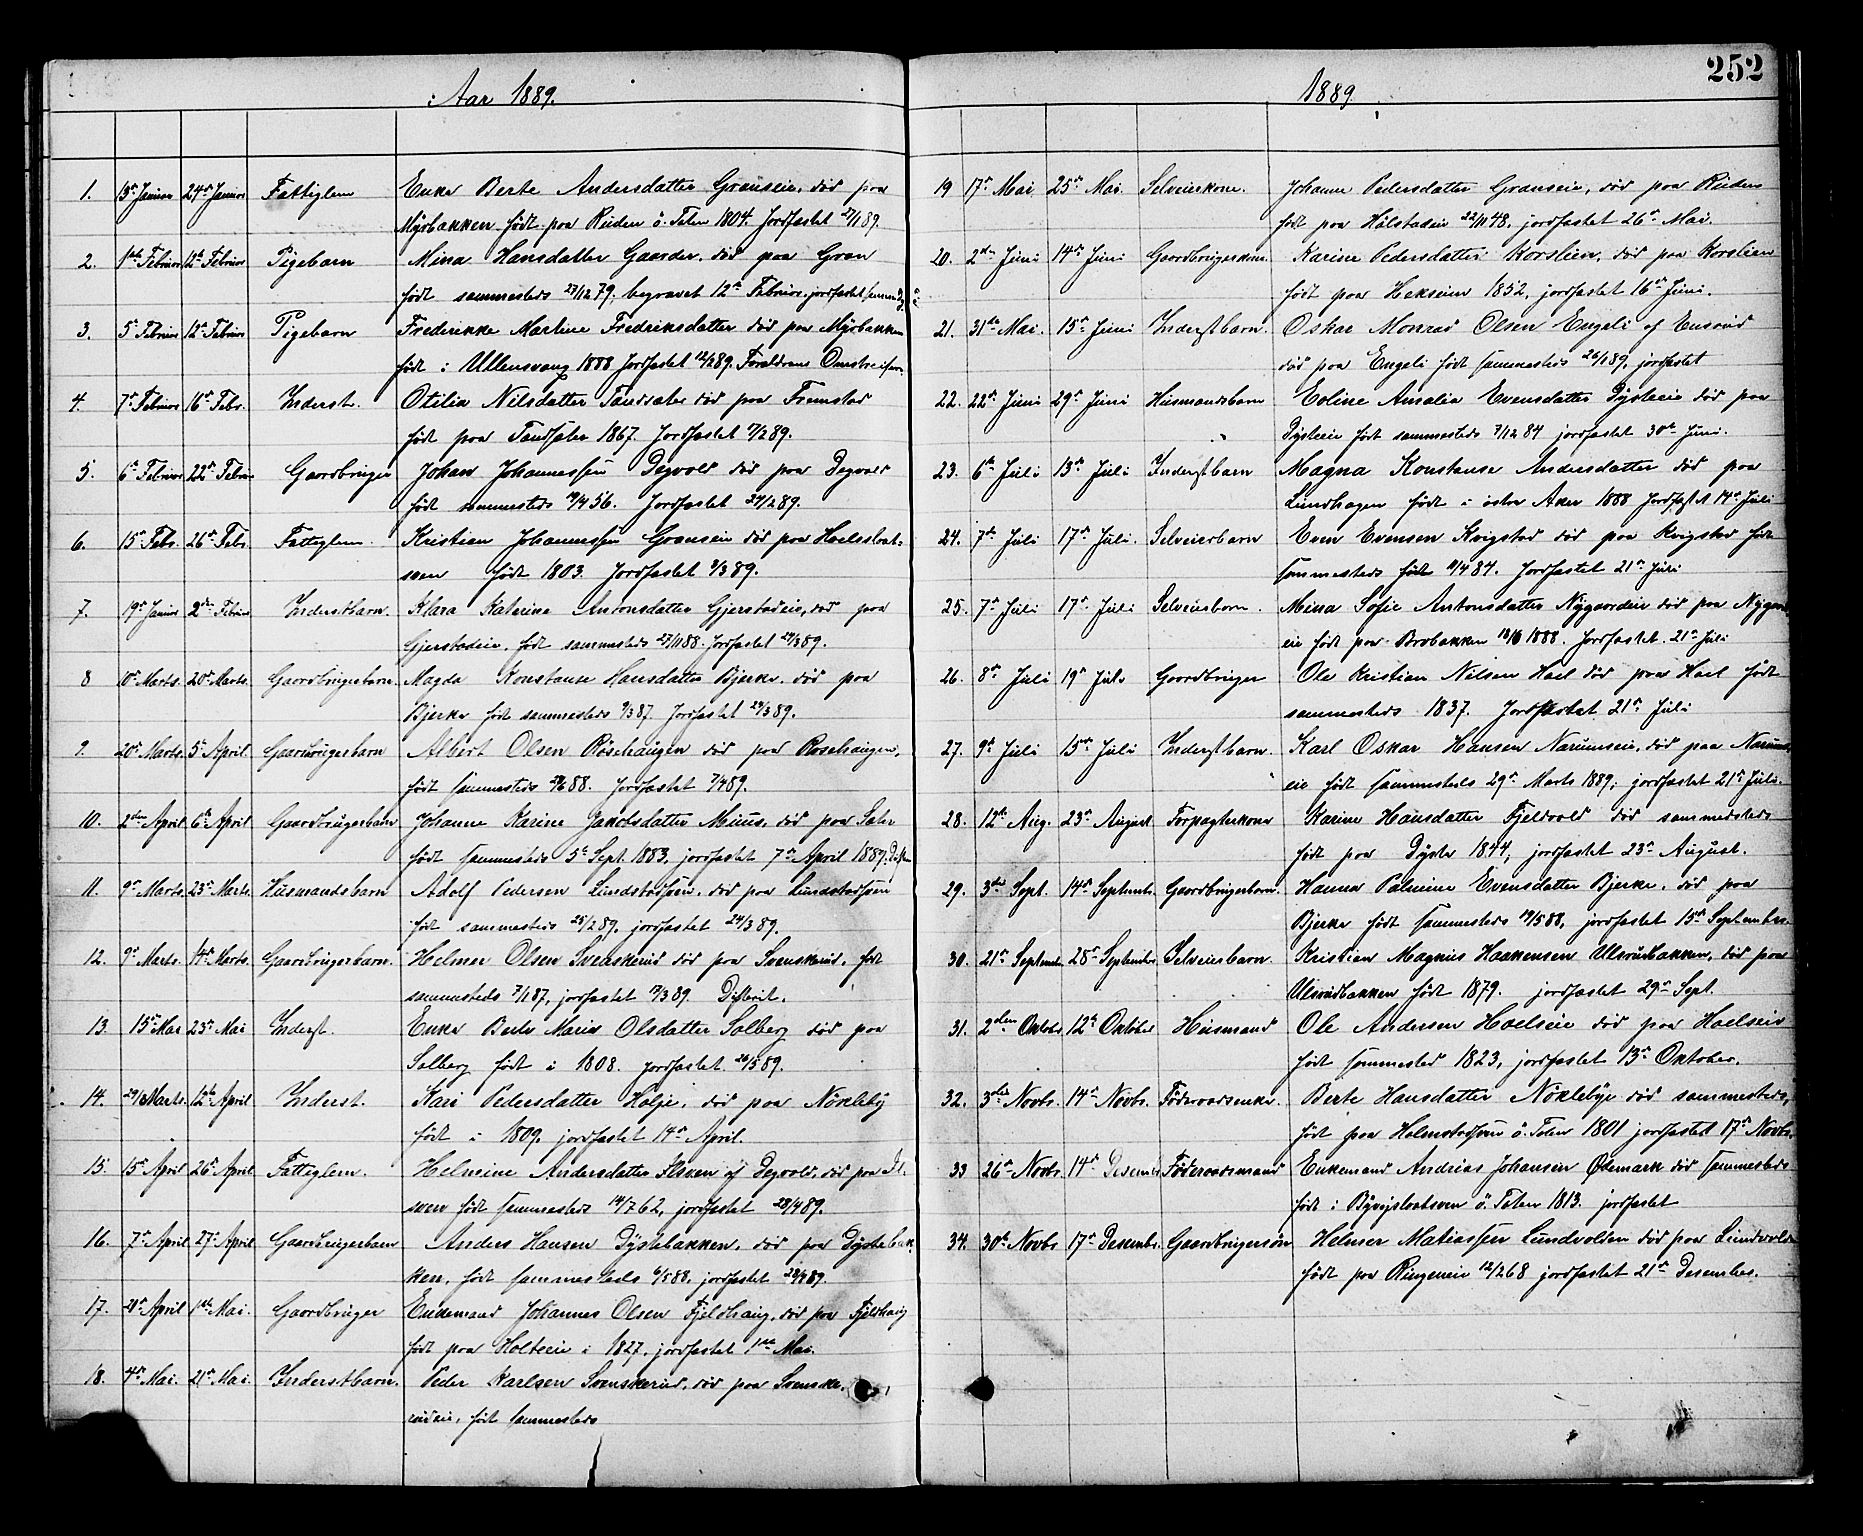 Aar 1889.
1. 13de Januar 24de Januar Fattiglem Enke Berte Andersdatter Granseie, död paa
Myrbakken födt paa Ruden ö. Toten 1804. Jordfastet 27/1 89.
2. 1ste Februar 12te Februar Pigebarn Mina Hansdatter Gaarder, död paa Gran
födt sammesteds 27/12 79, begravet 12te Februar, jordfastet samme Dag
3. 5te Februar 12te Februar Pigebarn Frederikke Martine Fredriksdatter död paa Myrbakken
födt i Ullensvang 1888 Jordfastet 12/2 89. Forældrene Omstreifere.
4. 7de Februar 16de Febr. Inderst. Otilia Nilsdatter Tandsæter död paa Fremstad
födt paa Tandsæter 1867. Jordfastet 17/2 89.
5. 6te Februar 22de Februar Gaardbruger Johan Johannessen Degvold död paa Degvold
födt sammesteds 19/4 56. Jordfastet 24/2 89.
6. 15de Febr. 26de Febr. Fattiglem. Kristian Johannessen Granseie död paa Hoelsslaat-
sveen födt 1803. Jordfastet 3/3 89.
7. 19de Januar 2den Februar Inderstbarn. Klara Katerine Antonsdatter Gjerstadeie, död paa
Gjerstadeie, födt sammesteds 27/11 88. Jordfastet 24/3 89.
8 10de Marts. 20de Marts. Gaardbrugerbarn. Magda Konstanse Hansdatter Bjerke, död paa
Bjerke födt sammesteds 9/3 87. Jordfastet 24/3 89.
9. 20de Marts. 5te April Gaardbrugerbarn Albert Olsen Röisehaugen död paa Roisehaugen,
födt sammesteds 88. Jordfastet 7/4 89.
10. 2den April 6te April Gaardbrugerbarn Johanne Karine Jakobsdatter Meius, död paa Sæter
födt sammesteds 5te Sept. 1883, jordfastet 7de April 1889.
11. 9de Marts. 23de Marts. Husmandsbarn Adolf Pedersen Lundstadsveen, död paa Lundstadsveen
födt sammesteds 25/2 89, jordfastet 24/3 89.
12. 9de Marts. 14de Marts. Gaardbrugerbarn. Helmer Olsen Svenskerud död paa Svenskerud, født
sammesteds 7/1 87, jordfastet 17/3 89. Difterit.
13. 15de Mai 23de Mai Inderst. Enke Berte Marie Olsdatter Solberg död paa
Solberg födt i 1808. jordfastet 26/5 89.
14. 29/3 Marts. 12te April Inderst. Kari Pedersdatter Holje, död paa Nökleby
födt i 1809, jordfastet 14de April.
15. 15de April 26de April Fattiglem. Helmine Andersdatter Ilsveen af Degvold, död paa Il-
sveen födt sammesteds 14/7 62, jordfastet 28/4 89.
16. 7de April 27de April Gaardbrugerbarn Anders Hansen Dystebakken, död paa Dystebak-
ken, födt sammesteds 6/5 88, jordfastet 28/4 89.
17. 21de April 1ste Mai. Gaardbruger Enkemand Johannes Olsen Fjeldhaug, död paa Fjeldhaug
födt paa Holteeie i 1827, jordfastet 1ste Mai.
18. 4de Mai. 21de Mai. Inderstbarn. Peder Karlsen Svenskerud, död paa Svenske-
rudeie, födt sammesteds
252
1889.
19 17de Mai 25de Mai. Selveierkone. Johanne Pedersdatter Granseie, död paa Ruden
födt paa Hölstadeie 22/11 48, jordfastet 26de Mai.
20. 2den Juni 14de Juni Gaardbrugerkone. Karine Pedersdatter Korslien, död paa Korslien
födt paa Hekseim 1852, jordfastet 16de Juni.
21. 31te Mai. 15de Juni Inderstbarn. Oskar Monrad Olsen Engeli af Ensrud
död paa Engeli födt sammesteds 26/1 89, jordfastet
22. 22de Juni 29de Juni Husmandsbarn Eoline Amalia Evensdatter Dysteeie död paa
Dysteeie födt sammesteds 7/12 84 jordfastet 30te Juni.
23. 6te Juli 13de Juli Inderstbarn Magna Konstanse Andersdatter död paa
Lundhagen födt i østre Aker 1888 Jordfastet 14de Juli
24. 7de Juli 17de Juli. Selveierbarn Even Evensen Kvigstad död paa Kvigstad födt
sammesteds födt 4/4 84. Jordfastet 21de Juli
25. 7de Juli 17de Juli Selveierbarn. Mina Sofie Antonsdatter Nygaardeie död paa Nygaard-
eie födt paa Brobakken 1888. Jordfastet 21de Juli
26. 8de Juli 19de Juli Gaardbruger Ole Kristian Nilsen Hoel död paa Hoel födt
sammesteds 1837. Jordfastet 21de Juli
27. 9de Juli 15de Juli Inderstbarn. Karl Oskar Hansen Narumseie, död paa Narums-
eie födt sammesteds 29de Marts 1889; jordfastet 21de Juli.
28. 12te Aug. 23de August Forpagterkone Karine Hansdatter Fjeldvold död sammesteds
födt paa Dyste 1844, jordfastet 23de August.
29. 3die Sept. 14de Septembr. Gaardbrugerbarn. Hanna Palmine Evensdatter Bjerke, död paa
Bjerke födt sammesteds 19/5 88, jordfastet 15de September.
30. 21de Septembr. 28de September Selveierbarn. Kristian Magnus Haakensen Ulsrudbakken, död paa
Ulsrudbakken födt 1879. jordfastet 29de Sept.
31. 2den Oktobr. 12te Oktober Husmand Ole Andersen Hoelseie död paa Hoelseie
födt sammested 1823, jordfastet 13de Oktober.
32. 3die Novbr. 14de Novbr. Föderaadsenke. Berte Hansdatter Nöklebye död sammesteds,
födt paa Holmstadsveen ö. Toten 1801 jordfastet 17de Novbr.
33 26de Novbr. 14de Desembr. Föderaadsmand Enkemand Andreas Johansen Ødemark död sammesteds
födt i Byvejslaatsveen ö. Toten 1813. jordfastet
34. 30te Novbr 17de Desembr. Gaardbrugersön Helmer Matiassen Lundvolden död paa Lundvolden
födt paa Ringeneie 12/2 68 jordfastet 21de Desember.